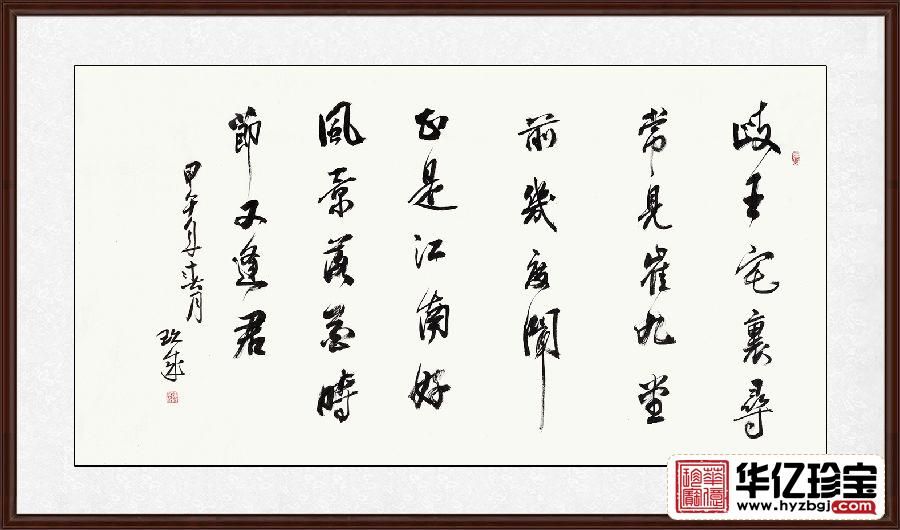 歧王宅裏尋
常見崔九堂
前幾度聞
正是江南好
風景落花時
節又逢君
甲午年春月
华亿珍宝
www.hyzbgj.com